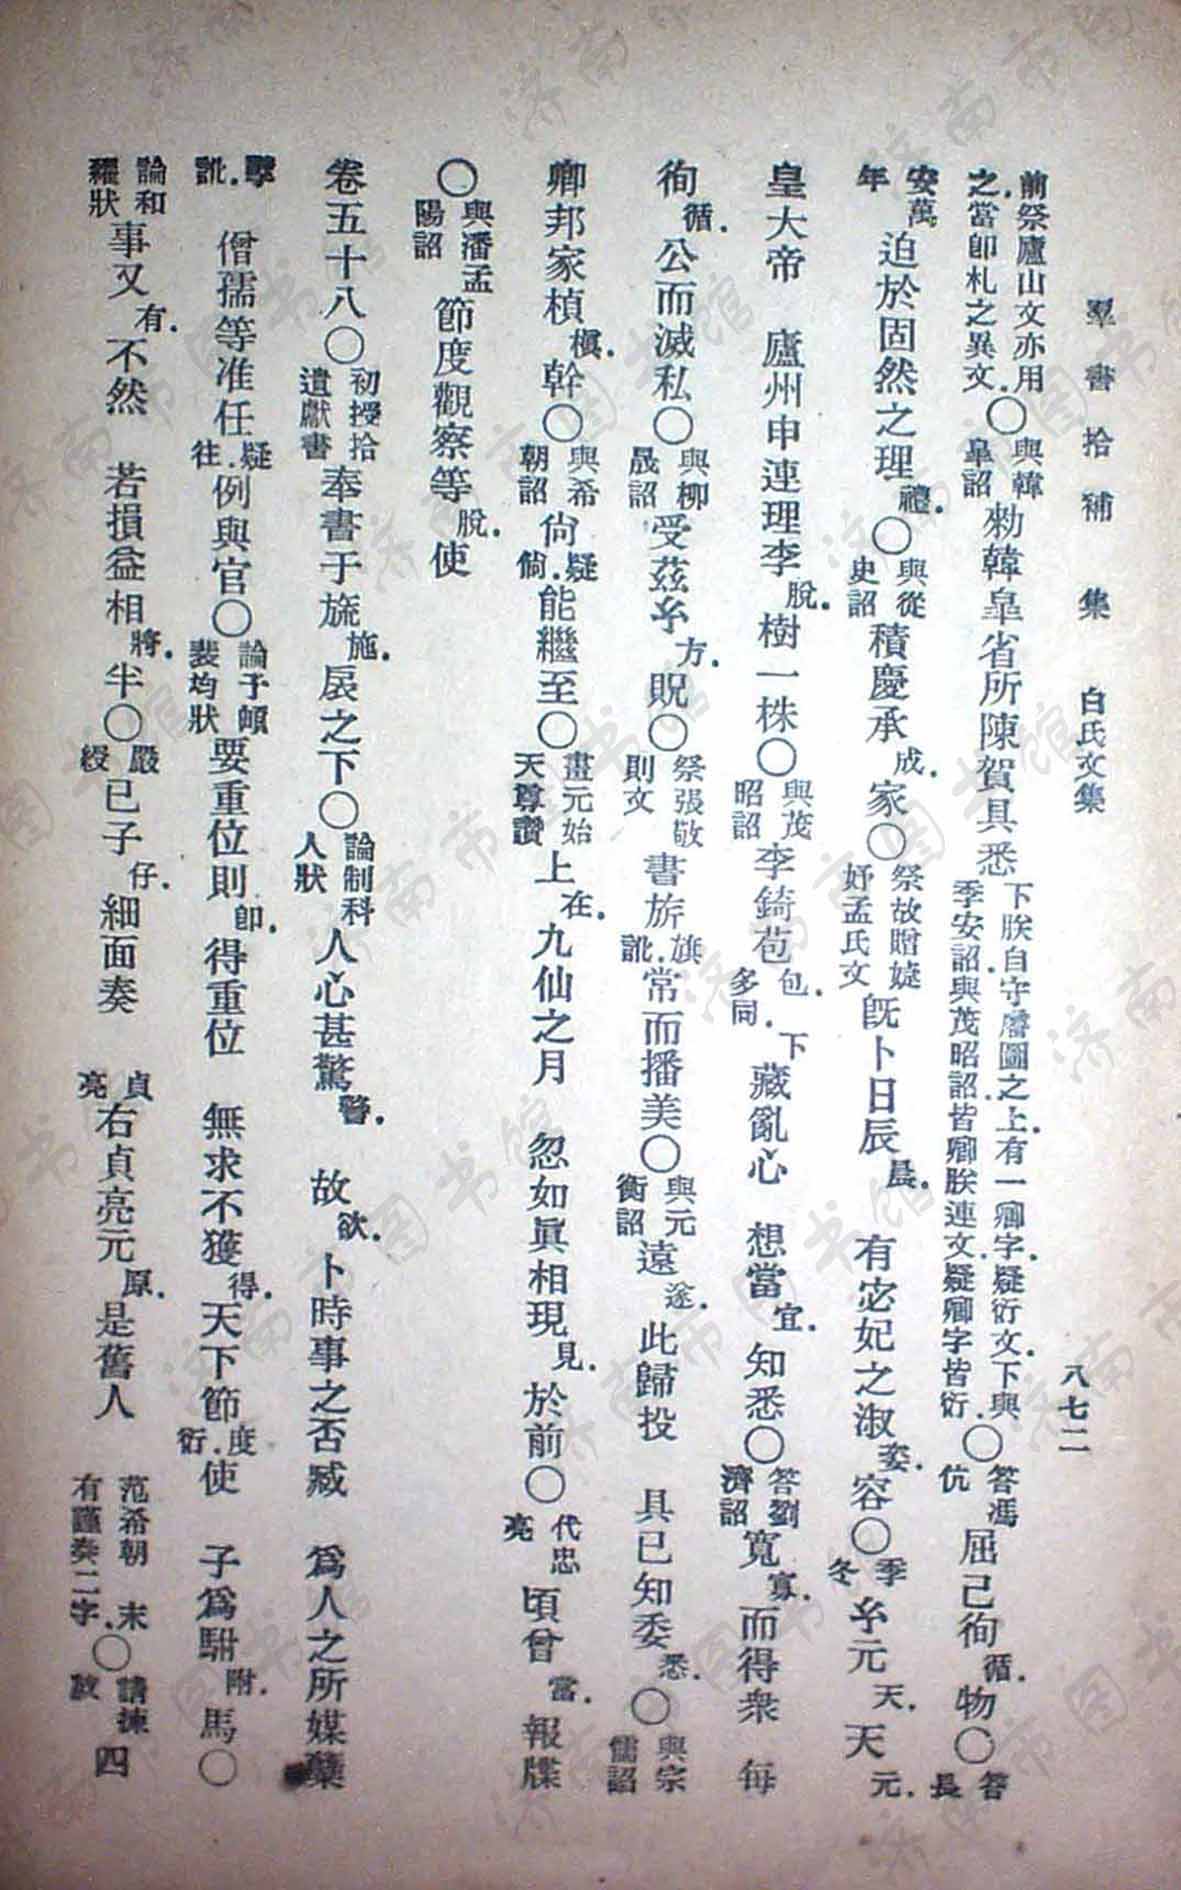 羣書拾補　集　白氏文集　八七二
前祭廬山文亦用之當卽札之異文〇與韓皐詔勑韓皐省所陳賀具悉下朕自守曆圖之上有一卿字疑衍文下與季安詔與茂昭詔皆卿朕連文疑卿字皆衍〇答馮伉屈己徇循物〇答長
安萬年迫於固然之理禮〇與從史詔積慶承成家〇祭故贈婕妤孟氏文旣卜日辰晨　有宓妃之淑姿容〇季冬厶元天天元
皇大帝　廬州申連理李脫樹一株〇與茂昭詔李錡苞包多同下藏亂心　想當宜知悉〇答劉濟詔寬寡而得衆　每
徇循公而滅私〇與柳晟詔受茲厶方貺〇祭張敬則文書旂旗訛常而播美〇與元衡詔遠途此歸投　具已知委悉〇與宗儒詔
卿邦家楨槙幹〇與希朝詔尙疑倘能繼至〇畫元始天尊讚上在九仙之月　忽如眞相現見於前〇代忠亮頃曾當報牒
〇與潘孟陽詔節度觀察等脫使
卷五十八〇初授拾遺獻書奉書于旒施扆之下〇論制科人狀人心甚驚警　故欲卜時事之否臧　爲人之所媒蘖
孼訛　僧孺等准任疑往例與官〇論于頔裴均狀要重位則卽得重位　無求不獲得天下節度衍使　子爲駙附馬〇
論和糴狀事又有不然　若損益相將半〇嚴綬已子仔細面奏　貞亮右貞亮元原是舊人　范希朝　末有謹奏二字〇請揀放四